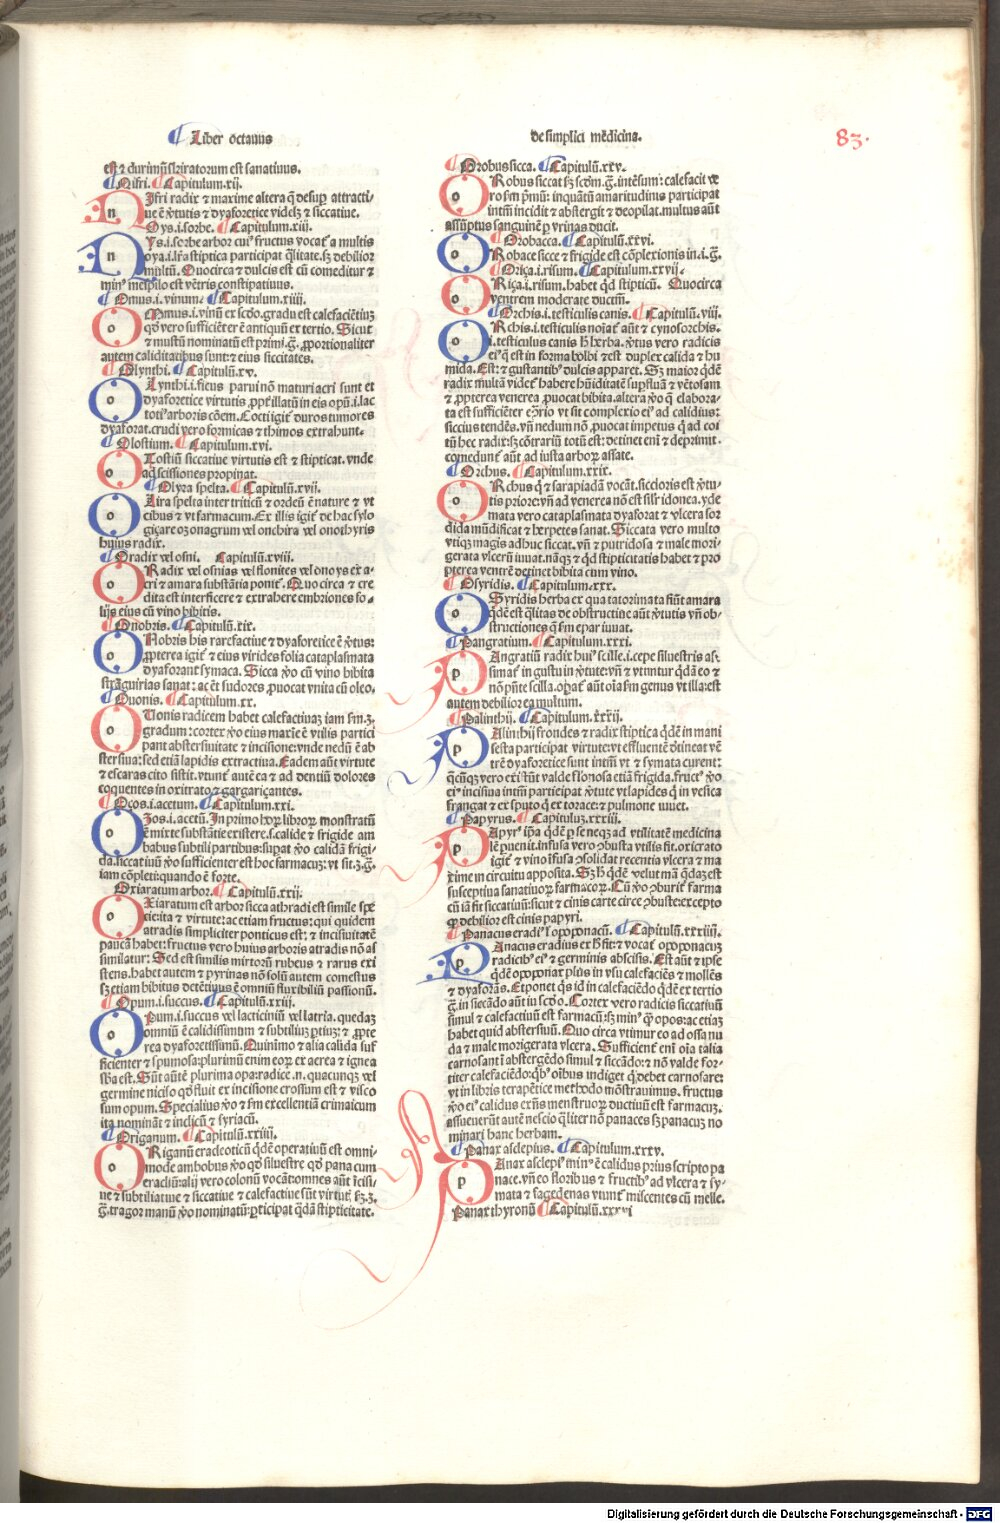 Liber octauus
de simplici medicina.
83.
est ⁊ durimũ sciratorum est sanatiuus.
Nifri. Capitulum.xij.
Ifri radix ⁊ maxime altera q̃ desuꝑ attracti-
ue ẽ ꝟtutis ⁊ dyaforetice videlꝫ ⁊ siccatiue.
Oys.i.sorbe. Capitulum.xiij.
Ys.i.sorbe arbor cuiꝰ fructus vocat̃ a multis
oya.i.lr̃a stiptica participat q̃litate.sꝫ debilior
multũ. Quocirca ⁊ dulcis est cũ comeditur ⁊
minꝰ in cipilo est vẽtris constipatiuus.
Omus.i.vinum. Capitulum.xiiij.
Mmus.i.vinũ ex sc̃do.gradu est calefaciẽtiuꝫ
qđ vero sufficiẽter ẽ antiquũ ex tertio. Sicut
⁊ mustũ nominatũ est primi.g̃. ꝓportionaliter
autem caliditatibus sunt ⁊ eius siccitates.
Olynthi. Capitulũ.xv.
Lynthi.i.ficus parui nõ maturi acri sunt et
dyaforetice virtutis ꝓpt̃ illatũ in eis opũ.i.lac
totiꝰ arboris cõem. Cocti igit̃ duros tumores
dyaforat.crudi vero formicas ⁊ thimos extrahunt.
Olostium. Capitulum.xvi.
Lostiũ siccatiue virtutis est ⁊ stipticat. vnde
aq̃ scissiones propinat.
Olyra spelta. Capitulũ.xvij.
Lira spelta inter triticũ ⁊ ordeũ ẽ nature ⁊ vt
cibus ⁊ vt farmacum. Ex illis igit̃ de hac sylo
giçare oꝫ onagrum vel onchira vel onothyris
huius radix.
Oradix vel osni. Capitulũ.xviij.
Radix vel osnias vel flonites vel onoys ex a-
cri ⁊ amara substãtia ponit̃. Quocirca ⁊ cre
dita est interficere ⁊ extrahere embriones fo-
lijs eius cũ vino bibitis.
Onobris. Capitulũ.xix.
Nobris his rarefactiue ⁊ dyaforetice ẽ ꝟtus:
ꝓpterea igit̃ ⁊ eius virides folia cataplasmata
dyaforant symaca. Sicca ꝟo cũ vino bibita
strãguirias sanat: ac ẽt sudores ꝓuocat vnita cũ oleo.
Ouonis. Capitulum.xx.
Uonis radicem habet calefactiuaꝫ iam fm.3.
gradum: cortex ꝟo eius maxie ẽ vtilis partici
pant abstersiuitate ⁊ incisione: vnde nedũ ẽ ab
stersiua: sed etiã lapidis extractiua. Eadem aũt virtute
⁊ escaras cito sistit. vtunt̃ autẽ ea ⁊ ad dentiũ dolores
coquentes in oxitrato ⁊ gargariçantes.
Oços.i.acetum. Capitulum.xxi.
Zos.i.acetũ. In primo hoꝝ libroꝝ monstratũ
ẽ mixte substãtie existere.s.calide ⁊ frigide am
babus subtili partibus: suꝑat ꝟo calidã frigi-
da. siccatiuũ ꝟo sufficienter est hoc farmacuꝫ: vt sit.3.g̃.
iam cõpleti: quando ẽ forte.
Oxiaratum arbor. Capitulũ.xxij.
Xiaratum est arbor sicca athradi est simile spẽ
ciei ⁊ ita ⁊ virtute: ac etiam fructus: qui quidem
atradis simpliciter ponticus est: ⁊ incisiuitatẽ
paucã habet: fructus vero huius arboris atradis nõ as
similatur: Sed est similis mirtorũ rubeus ⁊ rarus exi
stens. habet autem ⁊ pyrinas nõ solũ autem comestus
sꝫ etiam bibitus detẽtiuus ẽ omniũ fluxibiliũ passionũ.
Opum.i.succus. Capitulũ.xxiij.
Pum.i.succus vel lacticiniũ vel latria. quedaꝫ
omniũ ẽ calidissimum ⁊ subtiliuꝫ ptiuꝫ: ⁊ ꝓpte
rea dyaforetissimũ. Quinimo ⁊ alia calida suf
ficienter ⁊ spumosa: plurimũ enim eoꝝ ex aerea ⁊ ignea
sb̃a est. Sũt aũtẽ plurima opa: radice.n. quacunqꝫ vel
germine niciso qđ fluit ex incisione crossum est ⁊ visco
sum opum. Specialius ꝟo ⁊ fm excellentiã crimaicum
ita nominãt ⁊ indicũ ⁊ syriacũ.
Origanum. Capitulũ.xxiiij.
Riganũ eradeoticũ q̃dẽ operatiuũ est omni-
mode ambobus ꝟo qđ siluestre qđ pana cum
eracliũ: alij vero colonũ vocãt omnes aũt icisi-
ue ⁊ subtiliatiue ⁊ siccatiue ⁊ calefactiue sũt virtut̃ sꝫ.3.
g̃. tragor manũ ꝟo nominatũ: ꝑticipat q̃dã stipticitate.
Orobus sicca. Capitulũ.xxv.
Robus siccat sꝫ scdm̃.g̃. intẽsum: calefacit ve
ro sm̃ p̃mũ: inquãtũ amaritudinis participat
intm̃ incidit ⁊ abstergit ⁊ deopilat. multus aũt
assũptus sanguinẽ ꝑ vrinas ducit.
Orobacca. Capitulũ.xxvi.
Robace sicce ⁊ frigide est cõplexionis in.i.g̃.
Oriça.i.risum. Capitulum.xxvij.
Riça.i.risum. habet qđ stipticũ. Quocirca
ventrem moderate ductim̃.
Orchis.i.testiculis canis. Capitulũ.viij.
Rchis.i.testiculis noiat̃ aũt ⁊ cynosorchis.
i.testiculus canis h̃ herba. ꝟtus vero radicis
eiꝰ q̃ est in forma bolbi ⁊ est duplex calida ⁊ hu
mida. Est: ⁊ gustantibꝰ dulcis apparet. Sꝫ maior q̃dẽ
radix multã videt̃ habere hũiditatẽ suꝑfluã ⁊ vẽtosam
⁊ ꝓpterea venerea ꝓuocat bibita. altera ꝟo q̃ elabora-
ta est sufficiẽter eꝫrio vt sit complexio eiꝰ ad calidius:
siccius tendẽs. vñ nedum nõ ꝓuocat impetus q̃ ad coi
tũ hec radix: sꝫ cõtrariũ totũ est: detinet eni ⁊ deprimit.
comedunt̃ aũt ad iusta arboꝝ assate.
Orchus. Capitulum.xxix.
Rchus q̃ ⁊ sarapiadã vocãt. siccioris est ꝟtu-
tis priore: vñ ad venerea nõ est silr̃ idonea. yde
mata vero cataplasmata dyaforat ⁊ vlcera sor
dida mũdificat ⁊ herpetes sanat. Siccata vero multo
vtiqꝫ magis adhuc siccat. vñ ⁊ putridosa ⁊ male mori-
gerata vlcerũ iuuat. nãqꝫ ⁊ qđ stipticitatis habet ⁊ pro
pterea ventrẽ detinet bibita cum vino.
Osyridis. Capitulum.xxx.
Syridis herba ex qua tatorimata fiũt amara
q̃dẽ est q̃litas de obstructiue aũt ꝟtutis vñ ob-
structiones q̃ sm̃ epar iuuat.
Pangratium. Capitulum.xxxi.
Angratiũ radix huiꝰ scille.i.cepe siluestris as-
simat̃ in gustu in ꝟtute: vñ ⁊ vtuntur q̃dã eo ⁊
nõ pñte scilla. opat̃ aũt oia sm̃ genus vt illa: est
autem debilior ea multum.
Palinthij. Capitulum.xxxij.
Alinthij frondes ⁊ radix stiptica q̃dẽ in mani
festa participat virtute: vt effluentẽ ꝯtineat vẽ
trẽ dyaforetice sunt intm̃ vt ⁊ symata curent:
q̃cũqꝫ vero existũt valde flonosa etiã frigida. fructꝰ ꝟo
eiꝰ incisiua intm̃ participat ꝟtute vt lapides q̃ in vesica
frangat ⁊ ex sputo q̃ ex torace: ⁊ pulmone iuuet.
Papyrus. Capituluꝫ.xxxiij.
Apyrꝰ ip̃a q̃dẽ ꝑ se neqꝫ ad vtilitatẽ medicina
lẽ ꝑuenit. infusa vero ꝯbusta vtilis fit. oxicrato
igit̃ ⁊ vino ifusa ꝯsolidat recentia vlcera ⁊ ma
xime in circuitu apposita. Sꝫ h̃ q̃dẽ velut mã q̃daꝫ est
susceptiua sanatiuoꝝ farmacoꝝ. Cũ ꝟo ꝯburit̃ farma
cũ iã fit siccatiuũ: sicut ⁊ cinis carte circe ꝯbuste: excepto
qꝫ debilior est cinis papyri.
Panacus eradiꝰ opoponacũ. Capitulũ.xxxiiij.
Anacus eradius ex h̃ fit: ⁊ vocat̃ opoponacuꝫ
radicibꝰ eiꝰ ⁊ germinis abscisis. Est aũt ⁊ ipse
q̃dẽ opoponax plus in vsu calefaciẽs ⁊ molliẽs
⁊ dyaforãs. Et ponet q̃s id in calefaciẽdo q̃dẽ ex tertio
g̃. in siccãdo aũt in sc̃do. Cortex vero radicis siccatiuũ
simul ⁊ calefactiuũ est farmacũ: sꝫ minꝰ q̃ opos: ac etiaꝫ
habet quid abstersiuũ. Quo circa vtimur eo ad ossa nu
da ⁊ male morigerata vlcera. Sufficient̃ eni oia talia
carnosant i abstergẽdo simul ⁊ siccãdo: ⁊ nõ valde for-
titer calefaciẽdo: q̃bꝰ oibus indiget q̃ debet carnosare:
vt in libris terapẽtice methodo mõstrauimus. fructus
ꝟo eiꝰ calidus exñs menstruoꝝ ductiuũ est farmacuꝫ.
assueuerũt autẽ nescio q̃liter nõ panaces sꝫ panacuꝫ no
minari hanc herbam.
Panax asclepius. Capitulum.xxxv.
Anax asclepiꝰ minꝰ ẽ calidus prius scripto pa
nace. vñ eo floribus ⁊ fructibꝰ ad vlcera ⁊ fy-
mata ⁊ fagedenas vtunt̃ miscentes cũ melle.
Panax thyronũ Capitulũ.xxxvi
Digitalisierung gefördert durch die Deutsche Forschungsgemeinschaft - DFG